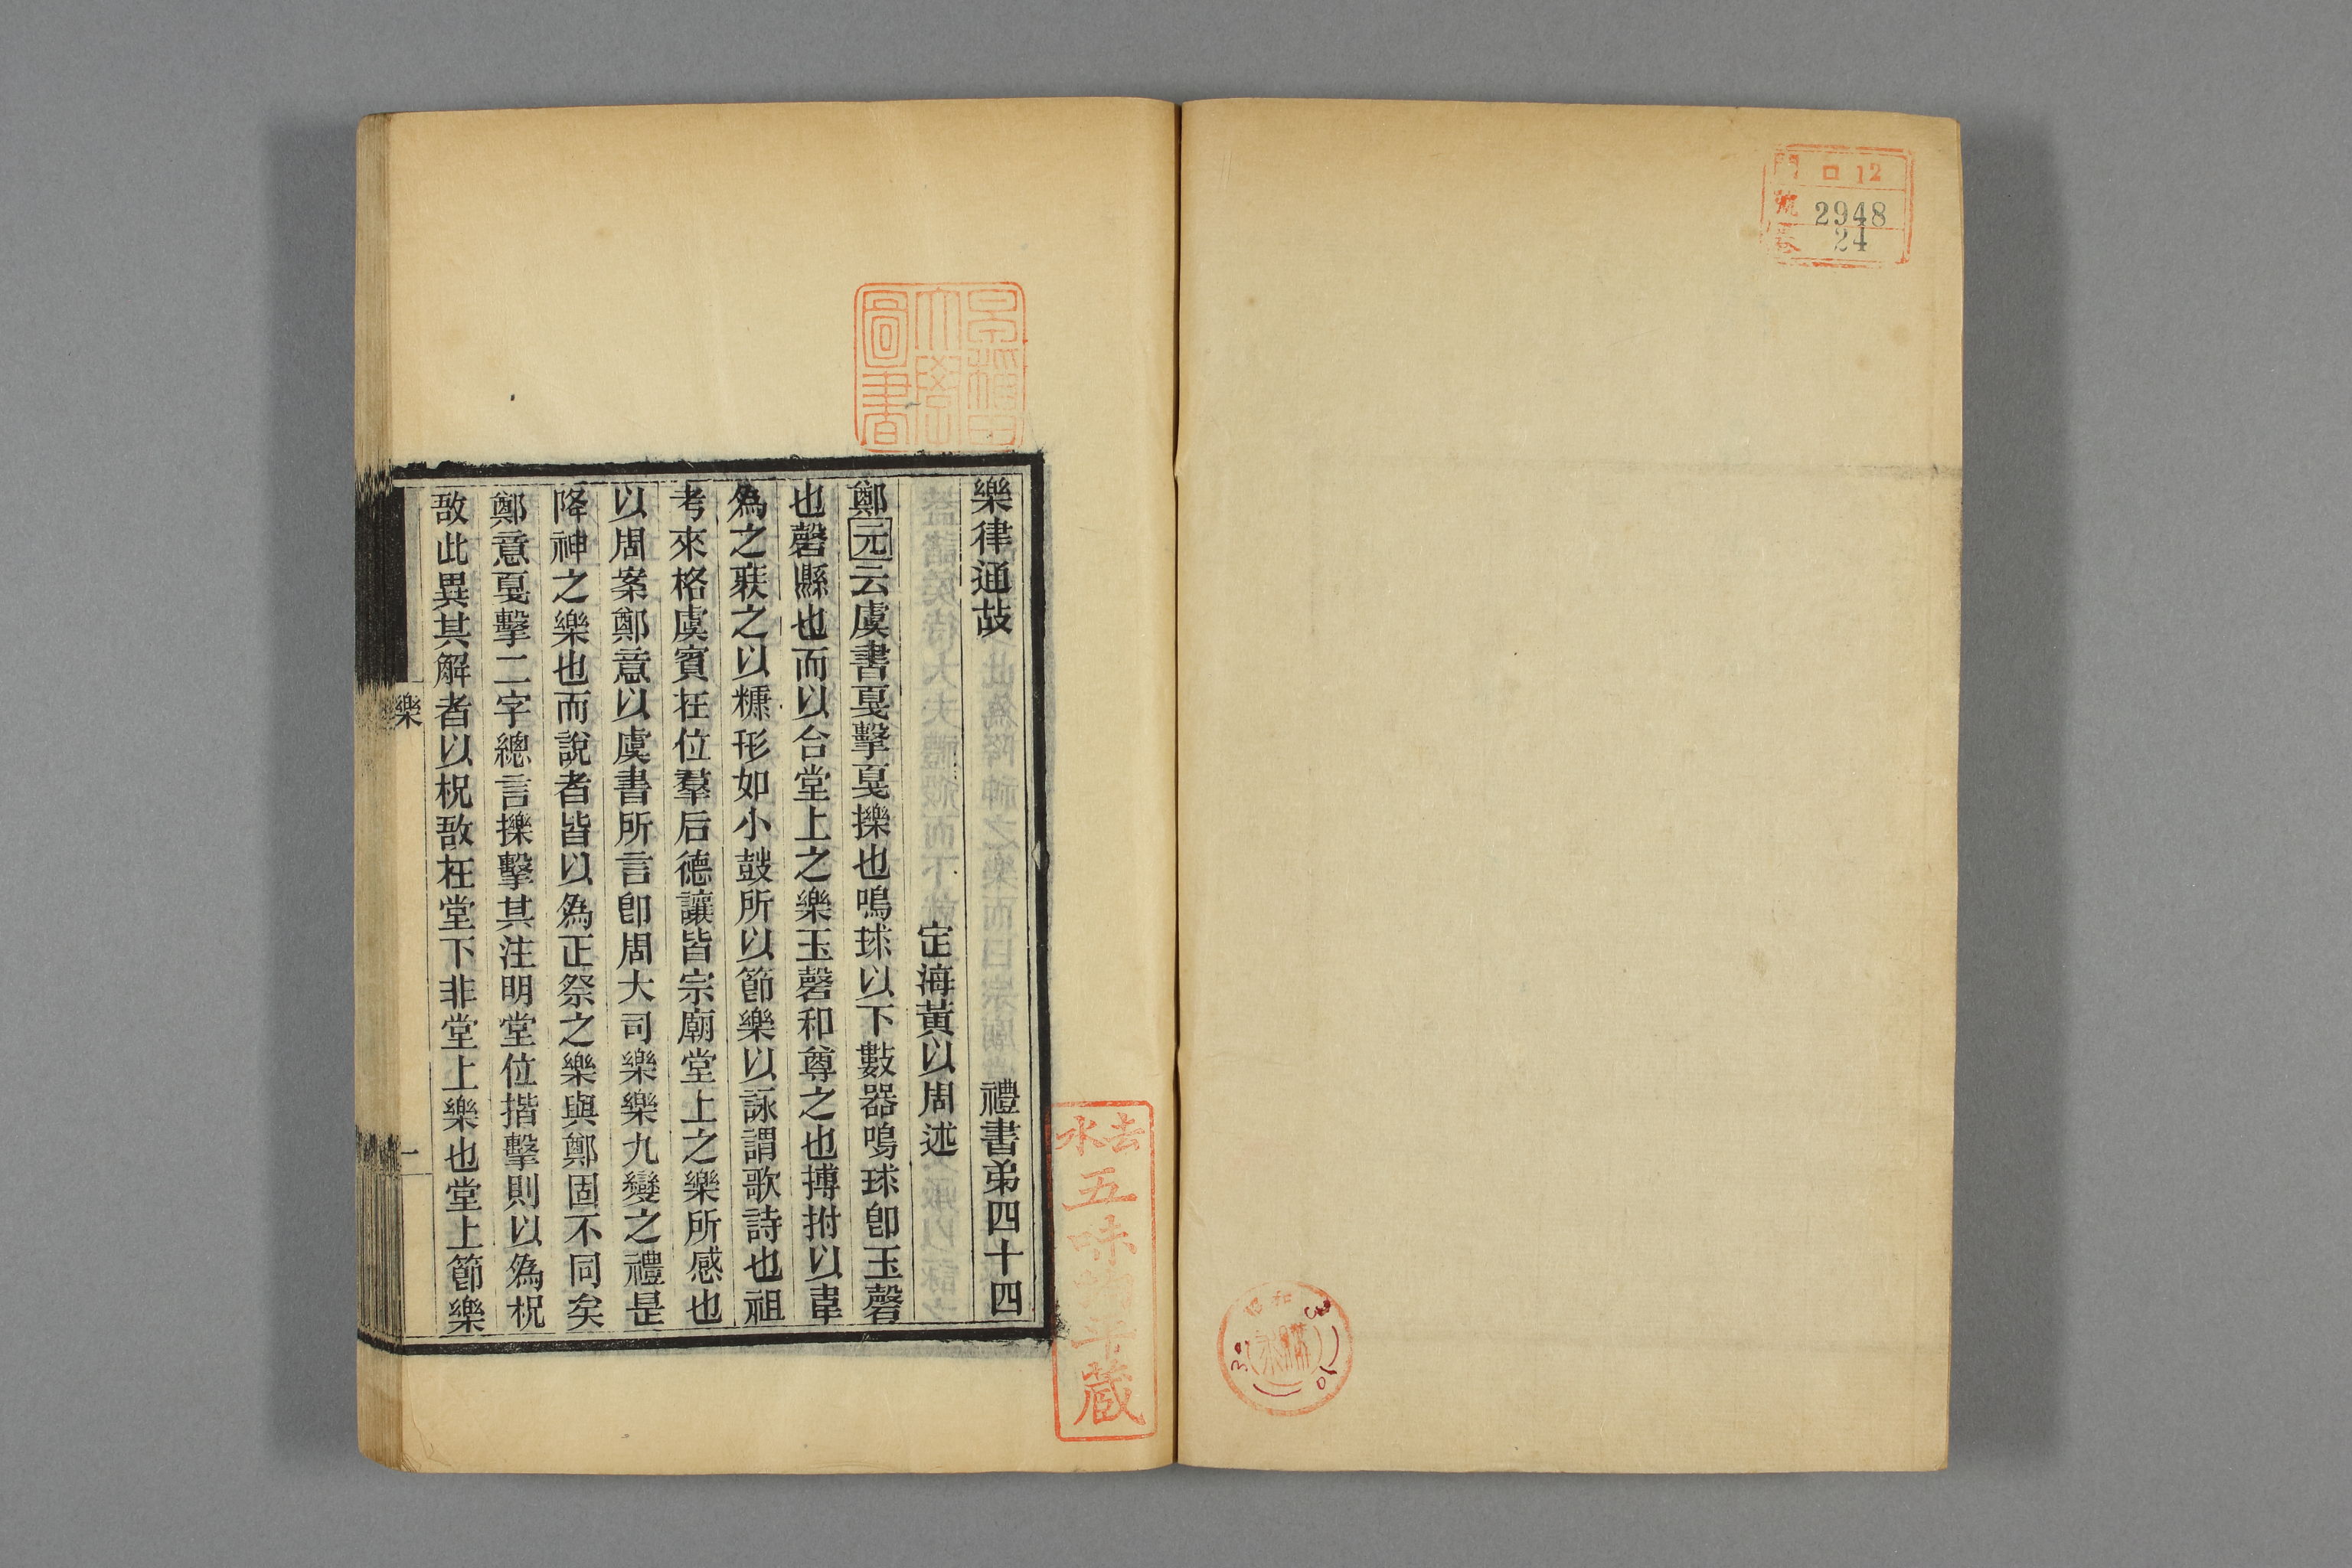 門 ロ 12
號 2948
卷 24
早稲田
大學
圖書
樂律通故 禮書弟四十四
定海黃以周述
鄭元云虞書戛擊戛擽也鳴球以下數器鳴球卽玉磬
也磬縣也而以合堂上之樂玉磬和尊之也搏拊以韋
爲之裝之以穅形如小鼓所以節樂以詠謂歌詩也祖
考來格虞賓在位羣后德讓皆宗廟堂上之樂所感也
以周案鄭意以虞書所言卽周大司樂樂九變之禮是
降神之樂也而說者皆以爲正祭之樂與鄭固不同矣
鄭意戛擊二字總言擽擊其注明堂位揩擊則以爲柷
敔此異其解者以柷敔在堂下非堂上樂也堂上節樂
樂
一
五味
藏